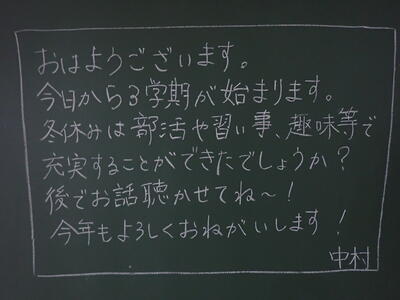 おはようございます。
今日から3学期が始まります。
冬休みは部活や習い事、趣味等で
充実することができたでしょうか?
後でお話聴かせてね〜!
今年もよろしくおねがいします!
中村